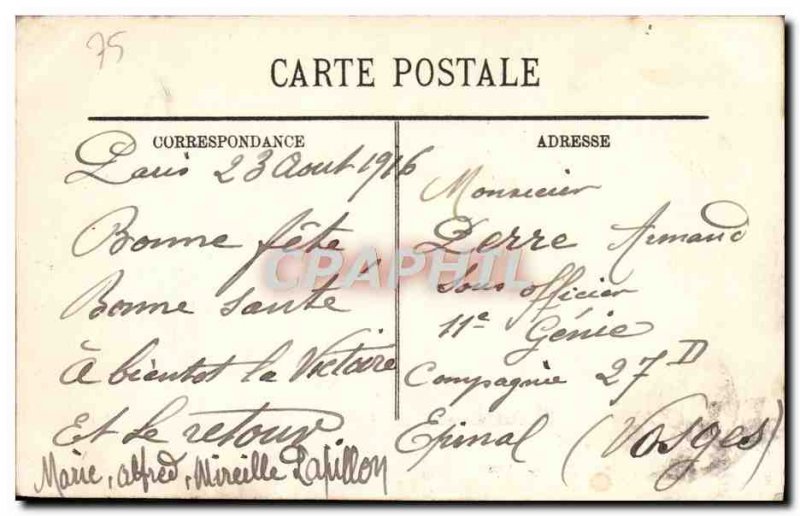 75
CARTE POSTALE
CORRESPONDANCE
Paris 23 Aout 1916
Bonne fête
Bonne santé
À bientot la Victoire
Et le retour
Marie, Alfred, Mireille Papillon
ADRESSE
Monsieur
Perre Armand
Sous officier
11e Génie
Compagnie 27 D
Epinal (Vosges)
CPAPHIL